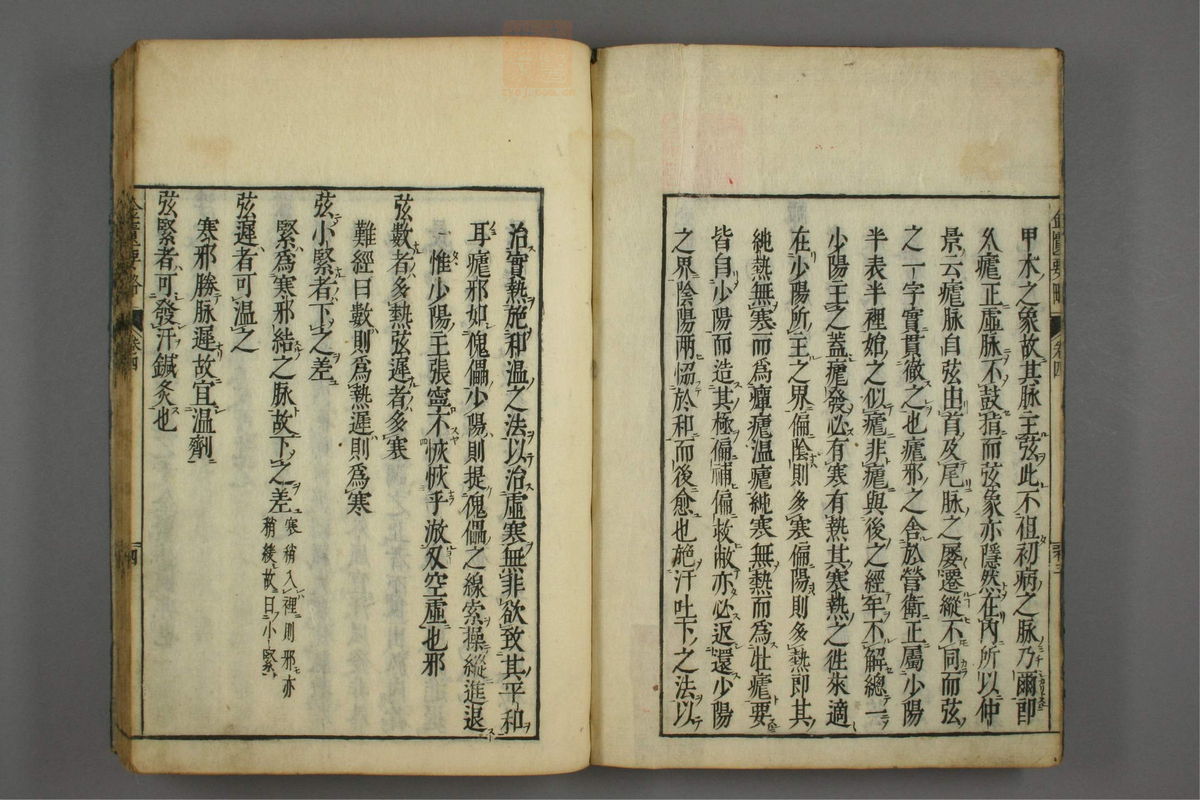 甲木之象故其脉主弦此不徂初病之脉乃爾即
久瘧正虛脉不鼓指而弦象亦隱然在內所以仲
景云瘧脉自弦由首及尾脉之屡遷縱不同而弦
之一字實貫徹之也瘧邪之舎於營衛正屬少陽
半表半裡始之似瘧非瘧與後之經年不解總一
少陽主之蓋瘧發必有寒有熱其寒熱之徃來適
在少陽所主之界偏陰則多寒偏陽則多熱即其
純熱無寒而爲癉瘧温瘧純寒無熱而爲牡瘧要
皆自少陽而造其極偏補偏救敝亦必返還少陽
之界陰陽兩恊於和而後愈也施汗吐下之法以
治實熱施和温之法以治虛寒無非欲致其平和
耳瘧邪如傀儡少陽則提傀儡之線索操縱進退
一惟少陽主張寧不恢恢乎游刄空虛也邪
弦數者多熱弦遲者多寒
難經曰數則爲熱遲則爲寒
弦小緊者下之差
緊爲寒邪結之脉故下之差寒稍入裡則邪亦稍緩故曰小緊
弦遲者可温之
寒邪勝脉遲故宜温劑
弦緊者可發汗鍼灸也
金匱要略
卷四
金匱要略
卷四
四